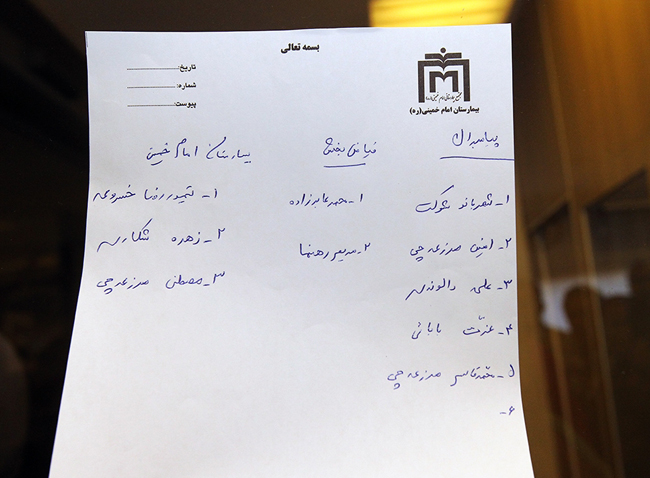 بسمه تعالی
تاریخ:
شماره:
پیوست:
بیمارستان امام خمینی(ره)
پیامبران
۱- شهربانو شوکت
۲- امین مزرعه چی
۳- علی دالوندی
۴- عزّت بابائی
۵- محمدقاسم مزرعه چی
۶-
فیاض بخش
۱- محمد عابرزاده
۲- مریم رهنما
بیمارستان امام خمینی
۱- تیمور رضا خسروی
۲- زهره شکاری
۳- مصطفی مزرعه چی